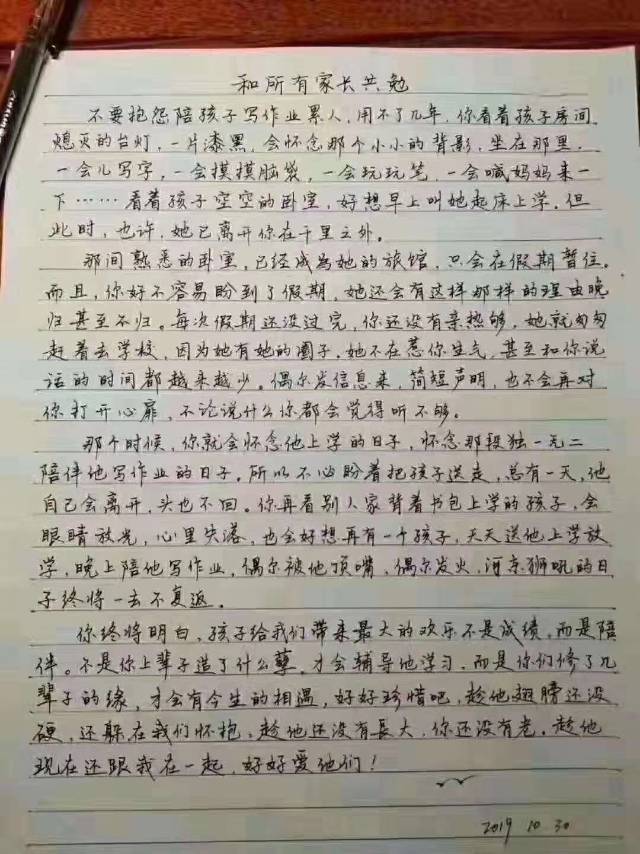 和所有家长共勉
不要抱怨陪孩子写作业累人,用不了几年,你看着孩子房间
熄灭的台灯,一片漆黑,会怀念那个小小的背影,坐在那里,
一会儿写字,一会摸摸脑袋,一会玩玩笔,一会喊妈妈来一
下……看着孩子空空的卧室,好想早上叫她起床上学。但
此时,也许,她已离开你在千里之外。
那间熟悉的卧室,已经成为她的旅馆,只会在假期暂住。
而且,你好不容易盼到了假期,她还会有这样那样的理由晚
归甚至不归。每次假期还没过完,你还没有亲热够,她就匆匆
赶着去学校,因为她有她的圈子。她不在惹你生气,甚至和你说
话的时间都越来越少。偶尔发信息来,简短声明,也不会再对
你打开心扉,不论说什么你都会觉得听不够。
那个时候,你就会怀念他上学的日子,怀念那段独一无二
陪伴他写作业的日子。所以不必盼着把孩子送走,总有一天,他
自己会离开,头也不回。你再看别人家背着书包上学的孩子,会
眼睛放光,心里失落,也会好想再有一个孩子,天天送他上学放
学,晚上陪他写作业,偶尔被他顶嘴,偶尔发火,河东狮吼的日
子终将一去不复返。
你终将明白,孩子给我们带来最大的欢乐不是成绩,而是陪
伴。不是你上辈子造了什么孽,才会辅导他学习,而是你们修了几
辈子的缘,才会有今生的相遇,好好珍惜吧,趁他翅膀还没
硬,还躲在我们怀抱,趁他还没有长大,你还没有老。趁他
现在还跟我在一起,好好爱他们!
2019 10 30